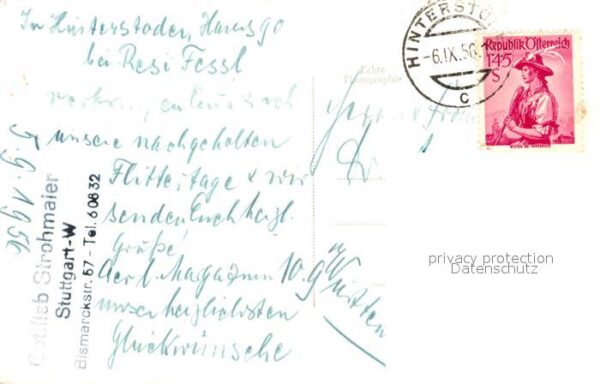 In Hinterstoder, Haus 90
bei Resi Fessl
verbringen
unsere nachgeholten
Flittertage & wir
senden Euch herzl.
Grüße!
10. 9.
unsere herzlichsten
Glückwünsche
5. 9. 1956
Gottlieb Strohmaier
Stuttgart-W
Bismarckstr. 57 - Tel. 60832
Echte
Photographie
HINTERSTO
-6.IX.56.
C
Republik Österreich
1'45
S
privacy protection
Datenschutz